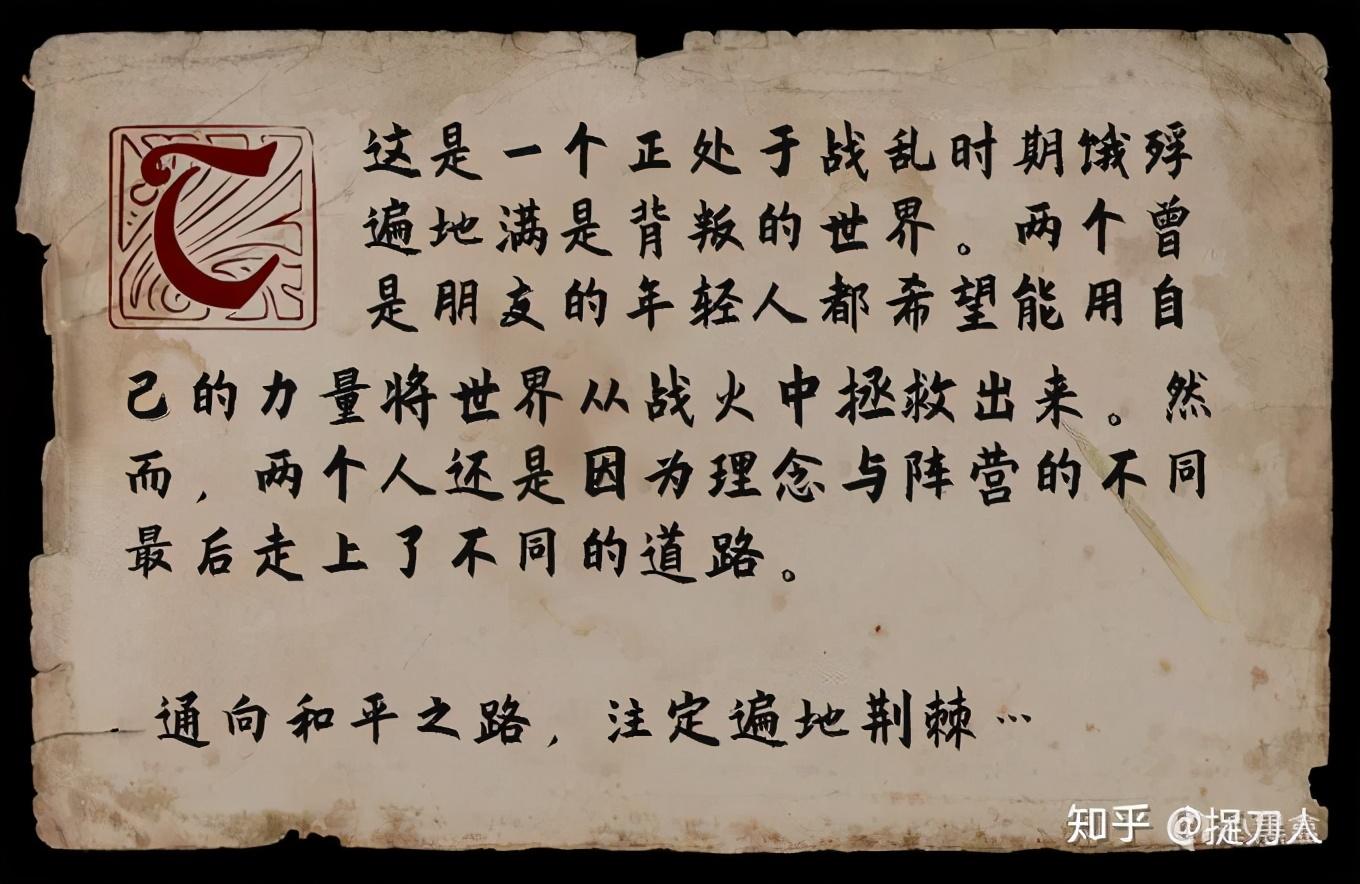 T
这是一个正处于战乱时期饿殍
遍地满是背叛的世界。两个曾
是朋友的年轻人都希望能用自
己的力量将世界从战火中拯救出来。然
而，两个人还是因为理念与阵营的不同
最后走上了不同的道路。
通向和平之路，注定遍地荆棘…
知乎 @捉刀人